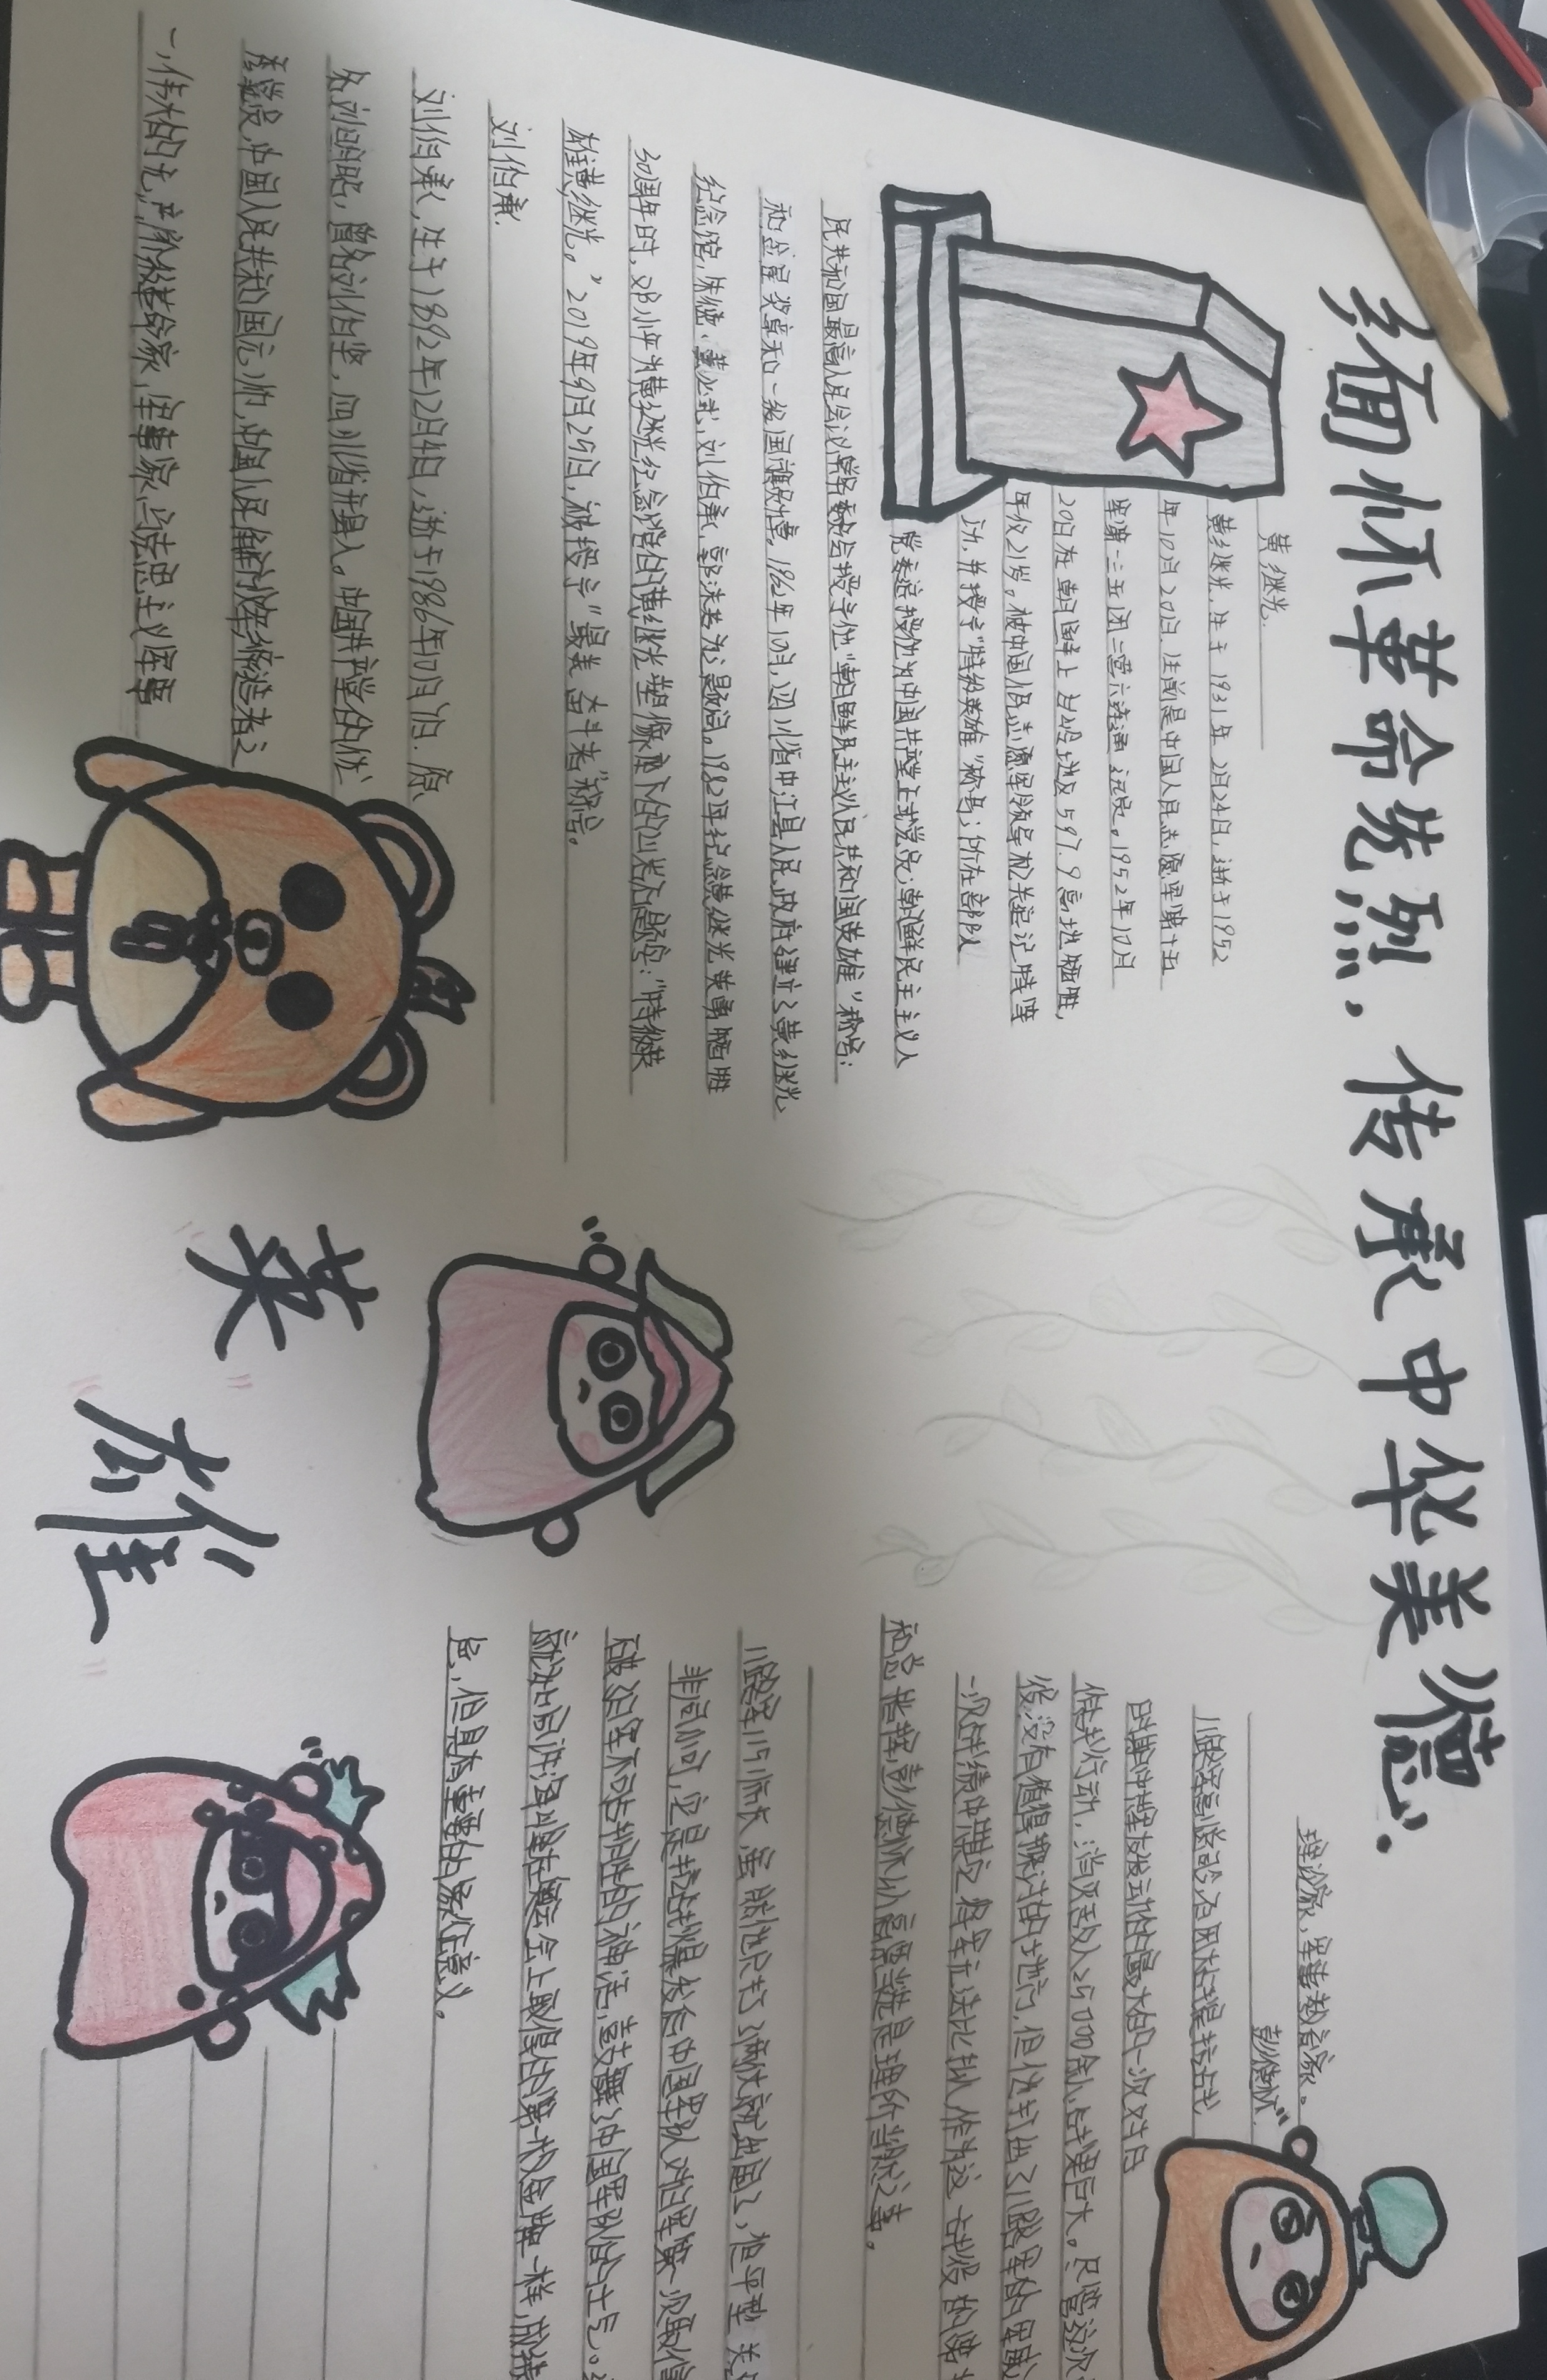 缅怀革命先烈，传承中华美德.
黄继光.
黄继光，生于1931年2月24日，逝于1952
年10月20日，生前是中国人民志愿军第十五
军第一三五团二营六连通讯员。1952年10月
20日在朝鲜上甘岭地区597.9高地牺牲，
年仅21岁，被中国人民志愿军领导机关追记特等
功，并授予“特级英雄”称号；所在部队
党委追授他为中国共产党正式党员；朝鲜民主主义人
民共和国最高人民会议常任委员会授予他“朝鲜民主主义人民共和国英雄”称号；
和金星奖章和一级国旗勋章。1962年10月，四川省中江县人民政府建立了黄继光
纪念馆，朱德、董必武，刘伯承，郭沫若为之题词。1982年纪念黄继光英勇牺牲
30周年时，邓小平为黄继光纪念馆的黄继光塑像座下的四米石题字：“特级英
雄黄继光。”2019年9月25日，被授予“最美奋斗者”称号。
刘伯承.
刘伯承，生于1892年12月4日，逝于1986年10月7日. 原
名刘明昭，曾名刘伯坚，四川省开县人。中国共产党的优
秀党员，中国人民共和国元帅，中国人民解放军缔造者之
一，伟大的无产阶级革命家，军事家，马法思主义军事
理论家，军事教育家。
彭德怀
八路军副总司令，百团大战是抗战
时期中军发动的最大的一次对日
作战行动，消灭敌人25000余人，战果巨大。尽管这次
役没有值得探讨的地方，但他打出了八路军的军威
一次战绩中其它将军无法比拟，作为这一战役的
和总指挥彭德怀认高票当选是理所当然之事。
八路军115师师长，虽然他只打了俩仗就出国了，但平型关
非同小可，它是抗战爆发后中国军队对日军第一次取
破日军不可战胜的神话，鼓舞了中国军队的士气。
就如同许海峰在奥运会上取得的第一枚金牌一样，成绩
色，但具有重要的象征意义。
英
雄